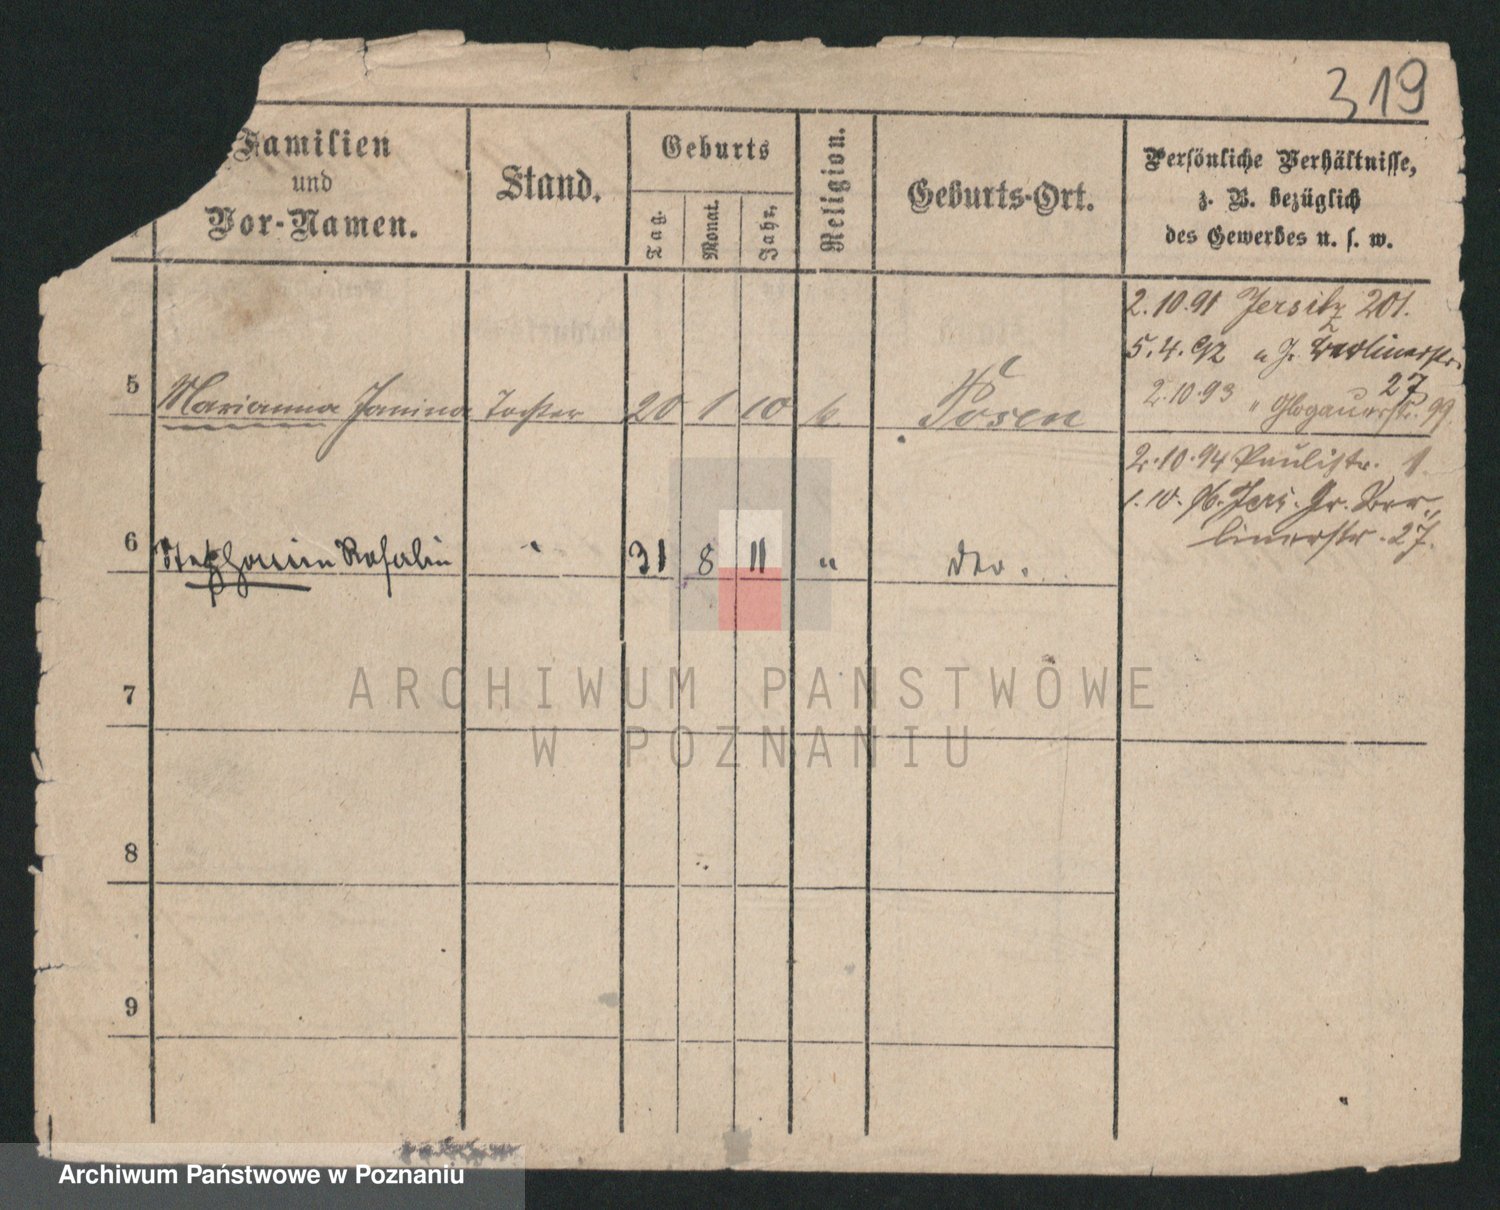 319
Familien
und
Vor-Namen.
Stand.
Geburts
Tag.
Monat.
Jahr.
Religion.
Geburts-Ort.
Persönliche Verhältnisse,
z. B. bezüglich
des Gewerbes u. s. w.
2.10.91 Jersitz 201.
5.4.92 " J. Berlinerstr.
27
2.10.93 " Glogauerstr. 99
5 Marianna Janina Tochter 20 1 10 k. Posen
2.10.94 Paulistr. 1.
1.10.96. Jers. Gr. Ber-
linerstr. 27.
6 Rosalia " 31 8 11 " dto.
7
8
9
ARCHIWUM PAŃSTWOWE
W POZNANIU
Archiwum Państwowe w Poznaniu